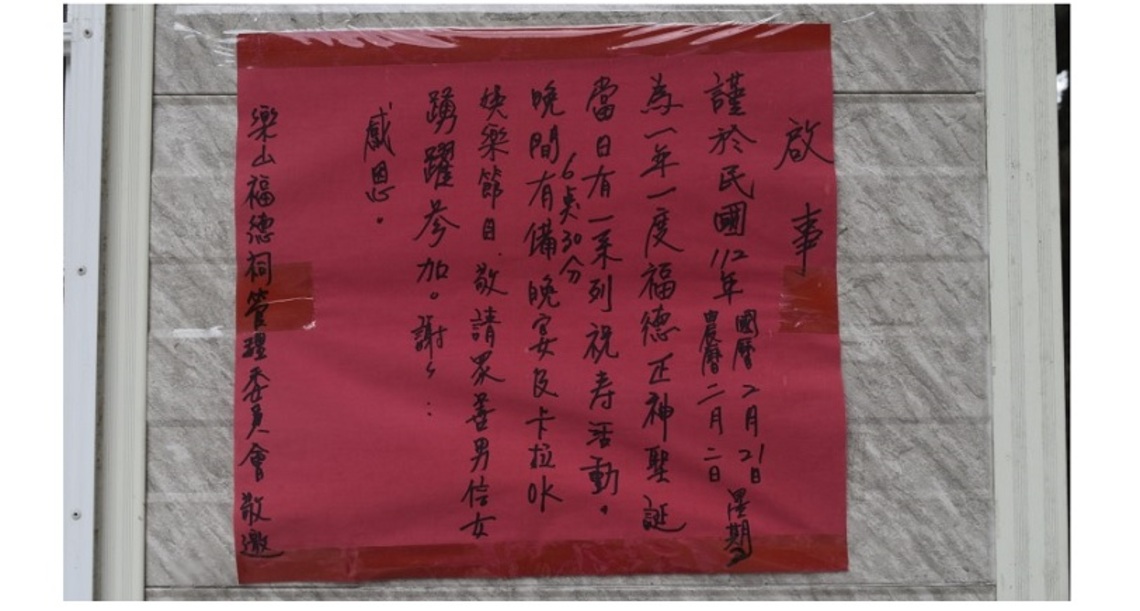 啟事
謹於民國112年國曆2月21日農曆二月二日星期二
為一年一度福德正神聖誕
當日有一系列祝寿活動。
晚間6奌30分有備晚宴及卡拉OK
娛樂節目.敬請眾善男信女
踴躍參加。謝々:
感恩.
樂山福德祠管理委員會 敬邀